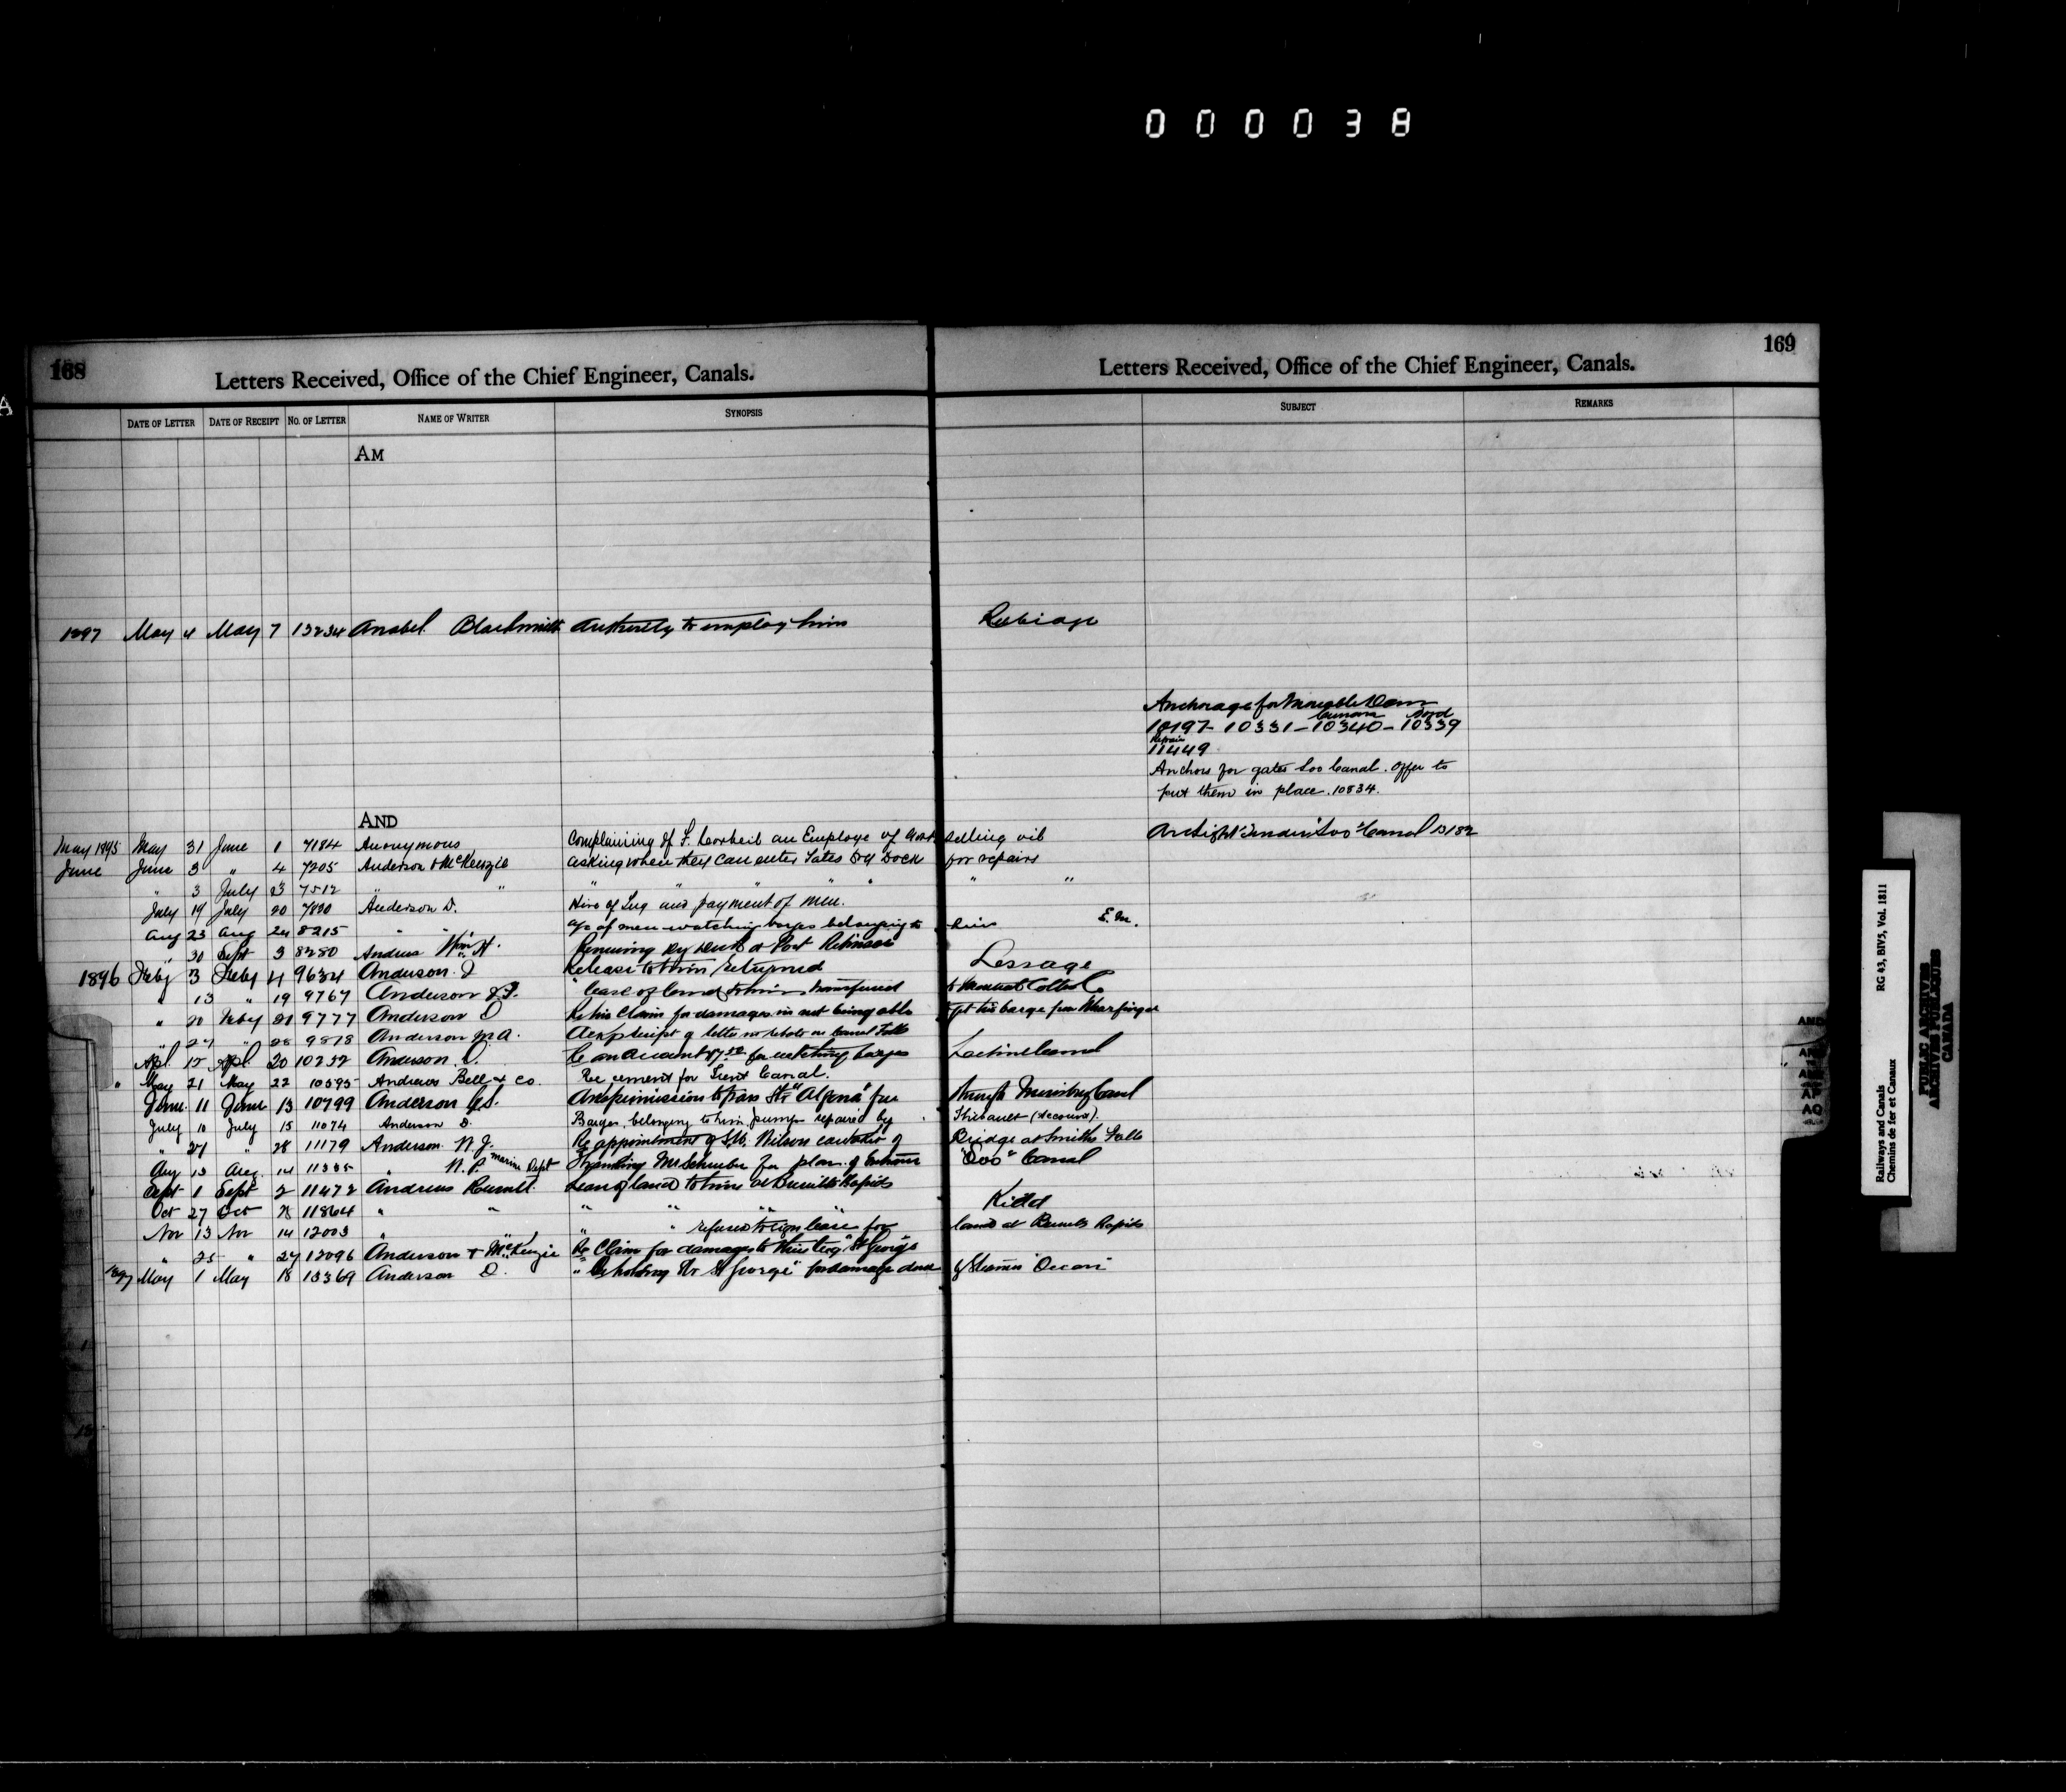 000038
A
168
Letters Received, Office of the Chief Engineer, Canals.
Letters Received, Office of the Chief Engineer, Canals.
169
DATE OF LETTER DATE OF RECEIPT NO. OF LETTER NAME OF WRITER SYNOPSIS SUBJECT REMARKS
AM
1897 May 4 May 7 13234 Anabel Blacksmith Authority to employ him
Anchorage for Moveable Dam
10197 - 10331 - 10340 - 10339
11449
Anchors for gates Soo Canal. Offer to
put them in place. 10834.
AND
Arc light tender "Soo" Canal 13182
May 1895 May 31 June 1 7184 Anonymous Complaining of F. an Employe of Govt selling oil
June June 3 " 4 7205 Anderson & McKenzie asking when they can enter Gates dry dock for repairs
" 3 July 23 7512 " " " " " " " "
July 19 July 20 7820 Anderson D. Hire of Tug and payment of men.
Aug 23 Aug 24 8215 " " a/c of men watching barges belonging to him E.M.
" 30 Sept 3 8280 Andrews Wm H. Renewing Dry Dock at Port Robinson
1896 Feby 3 Feby 4 9634 Anderson J Release to him returned Lessage
" 13 " 19 9767 Anderson " lease of land to him transferred to
" 20 Feby 21 9777 Anderson D Re his claim for damages in not being able to get his barge from Wharfinger
" 27 " 28 9818 Anderson M.A. receipt of letter re tolls on Canal
Apl 15 Apl 20 10232 Anderson D. Re an account for watching barges Lachine Canal
" May 21 May 22 10595 Andrews Bell & Co. Re cement for Trent Canal.
June 11 June 13 10799 Anderson Ask permission to pass Str "Alpena" free through Murray Canal
July 10 July 15 11074 Anderson D. Barges belonging to him pumps repaired by Thibault (Account).
" 27 " 28 11179 Anderson N.J. Re appointment of Wilson caretaker of Bridge at Smiths Falls
Aug 13 Aug 14 11335 " W. P. Marine Dept Thanking Mr Schreiber for plan of Entrance "Soo" Canal
Sept 1 Sept 2 11472 Andrews Lease of land to him at Burritts Rapids
Oct 27 Oct 28 11864 " " " " " " Kidd
Nov 13 Nov 14 12003 " " " " refused to sign lease for land at Burritts Rapids
" 25 " 27 12096 Anderson & McKenzie Re Claim for damages to their tug "St George"
1897 May 1 May 18 13369 Anderson D. " holding Str "St George" for damage done
Public Archives
Archives publiques
Canada
Railways and Canals
Chemins de fer et Canaux
RG 43, BIV5, Vol. 1811